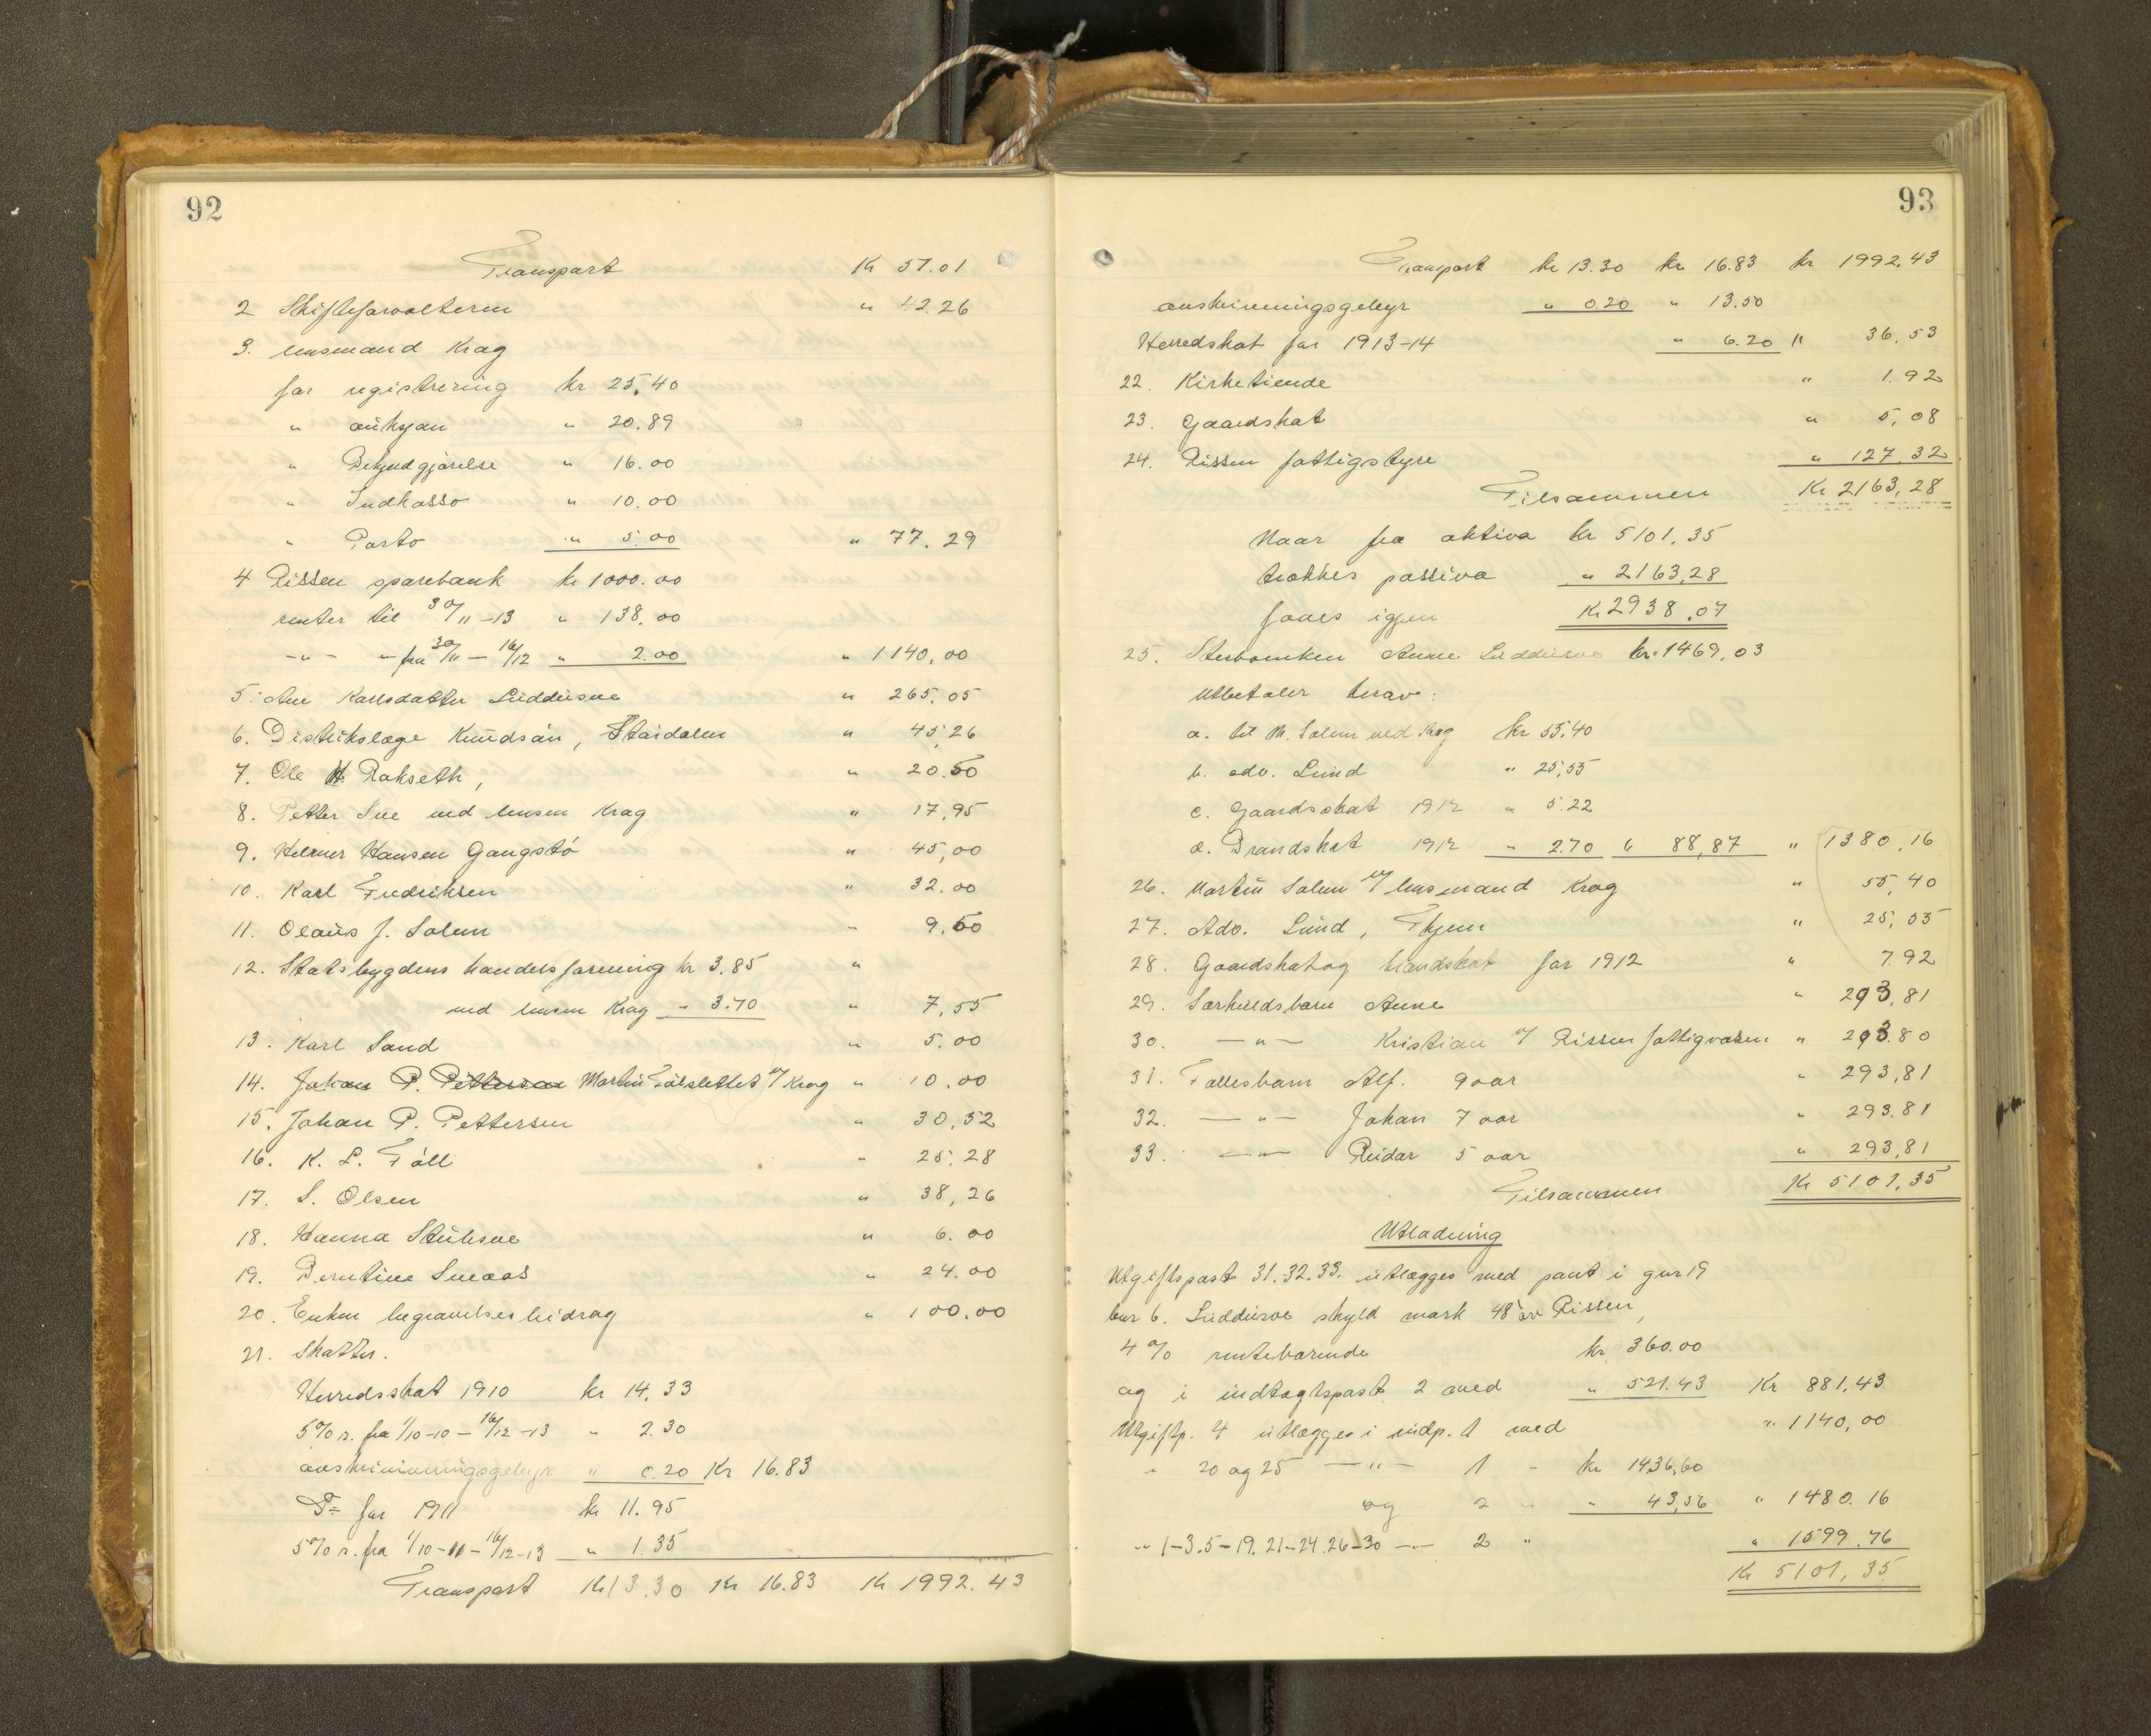 92
Transport Kr 51.01
2 Skifteforvalteren " 42.26
3. lensmand Krag
for registrering kr 25.40
" auksjon " 20.89
" Bekjendgjørelse " 16.00
" Indkasso " 10.00
" Porto " 5.00 " 77.29
4 Rissen sparebank kr 1000.00
renter til 30/11-13 " 138.00
-"- " fra 30/11 - 16/12 " 2.00 " 1140,00
5. Ane Karlsdatter Ludduvoe " 265.05
6. Distrikslæge Knudsøn, Staidalen " 45,26
7. Ole H. Rokseth, " 20.50
8. Petter Sve ved lensm Krag " 17,95
9. Hilmer Hansen Gangstø " 45,00
10. Karl Fredriksen " 32.00
11. Olaus J. Solem " 9.50
12. Statsbygdens handelsforening kr 3.85 "
ved lensm Krag " 3.70 " 7,55
13. Karl Sand " 5.00
14. Johan P. Pettersen Martin Følslettet v/ Krag " 10.00
15. Johan P. Pettersen " 30,52
16. K. L. Føll " 25.28
17. S. Olsen " 38,26
18. Hanna " 6.00
19. Berntine " 24.00
20. Enken begravelsesbidrag " 100.00
21. Skatter.
Herredsskat 1910 kr 14,33
5% r. fra 1/10-10 - 16/12-13 " 2.30
anskrivningsgebyr " 0.20 Kr 16.83
Do for 1911 kr 11.95
5% r. fra 1/10-11 - 16/12-13 " 1.35
Transport Kr 13.30 Kr 16.83 Kr 1992.43
93
Transport kr 13.30 kr 16.83 kr 1992,43
anskrivningsgebyr " 0.20 " 13.50
Herredskat for 1913-14 " 6.20 " 36,53
22. Kirketiende " 1.92
23. Gaardskat " 5,08
24. Rissen fattigstyre " 127,32
Tilsammen Kr 2163,28
Naar fra aktiva kr 5101,35
trækkes passiva " 2163,28
faaes igjen Kr 2938.07
25. Sterboenken Anne Ludduvoe kr. 1469,03
Utbetaler herav:
a. til M. Solem ved Krag kr 55,40
b. adv. Lund " 25,55
c. Gaardsskat 1912 " 5.22
d. Brandskat 1912 " 2.70 " 88,87 " 1380,16
26. Martin Solem v/ lensmand Krag " 55,40
27. Adv. Lund, Thjem " 25,55
28. Gaardskat og brandskat for 1912 " 7.92
29. Særkuldsbarn Anne " 293,81
30. -"- Kristian v/ Rissen fattigvæsen " 293.80
31. Fællesbarn Alf. 9 aar " 293,81
32. -"- Johan 7 aar " 293.81
33. -"- Reidar 5 aar " 293,81
Tilsammen Kr 5101,35
Utlodning
Utgiftspost 31. 32. 33. utlægges med pant i gnr 19
bnr 6. Ludduvoe skyld mark 48 øre Rissen,
4% rentebærende kr 360.00
og i indtægtspost 2 med " 521.43 Kr 881,43
Utgiftp. 4 utlægges i indp. 1 med " 1140,00
" 20 og 25 -"- 1 - kr 1436,60
og 2 " " 43,56 " 1480.16
" 1-3. 5-19. 21-24. 26-30 -"- 2 " " 1599.76
Kr 5101,35